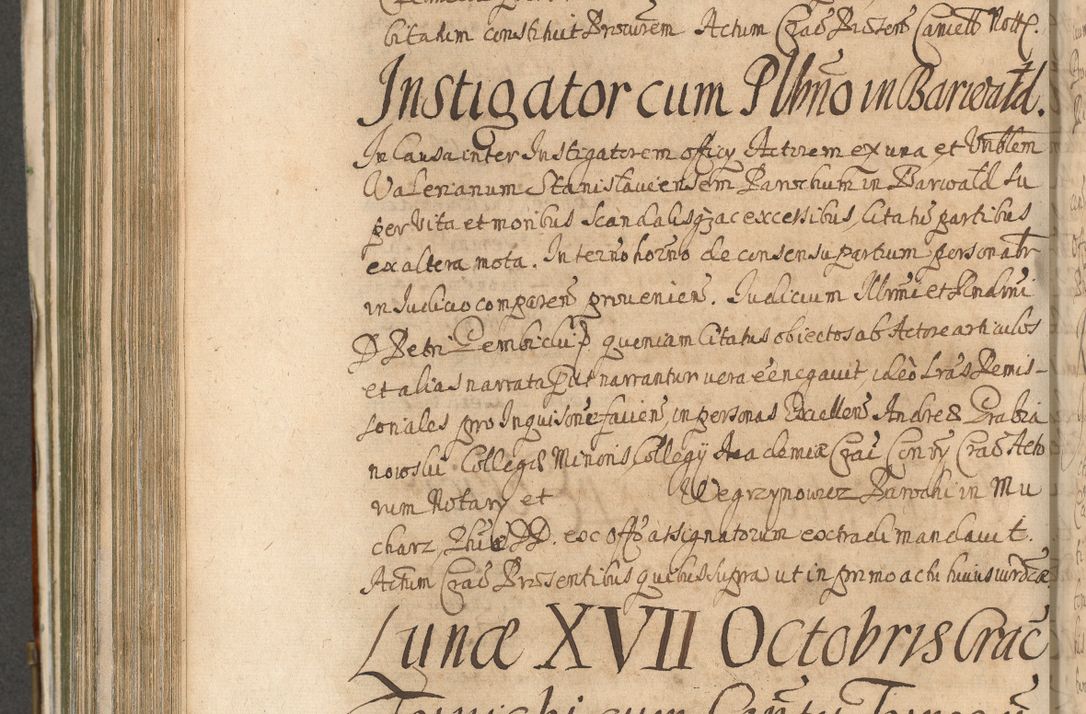 bitalium constituit Procurem Actum Crac Præsent Cancell Nott.
Instigator cum Plbno in Barwald.
In Causa inter Instigatorem officy Actorem ex una, et Vnblem
Valerianum Stanislauiensem Parochum in Barwald su
per vita et moribus scandalisq; ac excessibus, Citatu partibus
ex altera mota. In termo horno de consensu partium personabr
in Iudicio comparen proueniens. Iudicium Illrmi et Rndmi
D Petri Gembicki, quoniam Citatus obiectos ab Actore articulos
et alias narrata put narrantur vera eē negauit, ideo Lras Remis-
soniales pro Inquisone faciens, in personas Excellens Andreæ Grabia
nowski Collegæ Minoris, Collegy Academiæ Crac Con ry Crac Acto
rum Notary et Wegrzynowicz Parochi in Mu
charz, DD. ex offo assignatorum extradi mandauit.
Actum Crac Præsentibus quibus supra, ut in primo actu huius
Lunæ XVII Octobris Crac